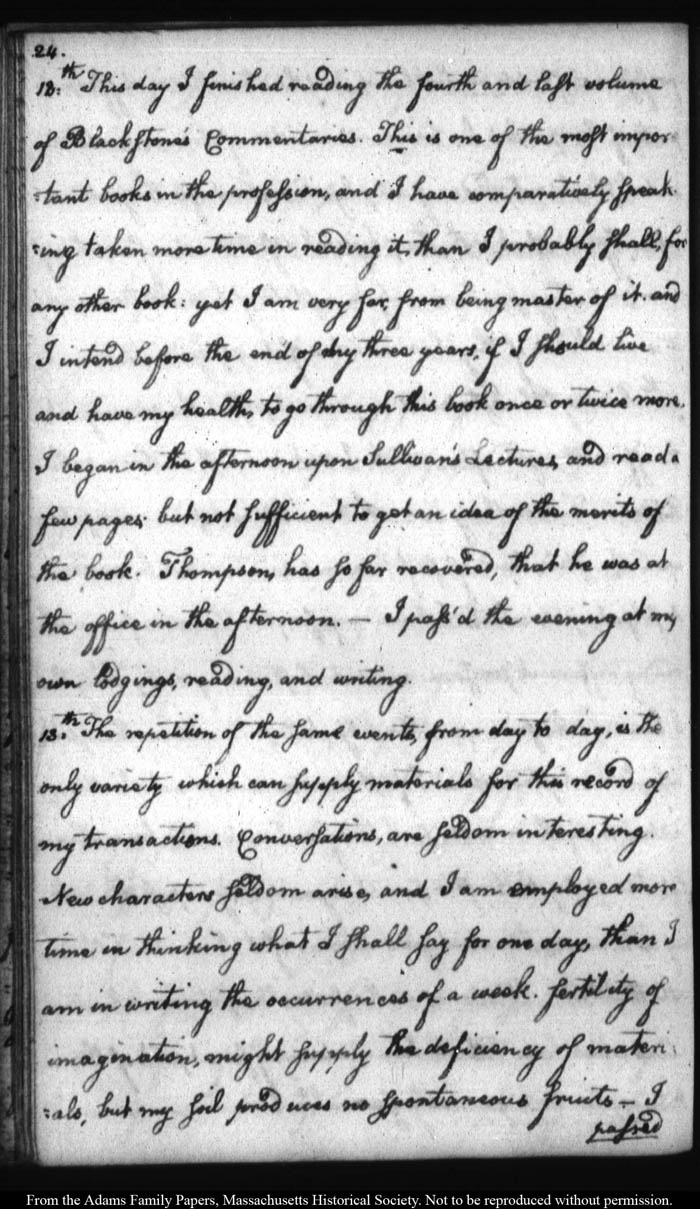 24.
12.th This day I finished reading the fourth and last volume
of Blackstone's Commentaries. This is one of the most impor-
:tant books in the profession, and I have comparatively speak-
:ing taken more time in reading it, than I probably shall, for
any other book: yet I am very far, from being master of it. and
I intend before the end of my three years, if I should live
and have my health, to go through this book once or twice more.
I began in the afternoon upon Sullivan's Lectures, and read a
few pages; but not sufficient to get an idea of the merits of
the book. Thompson, has so far recovered, that he was at
the office in the afternoon. — I pass'd the evening at my
own lodgings, reading, and writing.
13.th The repetition of the same events, from day to day, is the
only variety which can supply materials for this record of
my transactions. Conversations, are seldom interesting.
New characters seldom arise, and I am employed more
time in thinking what I shall say for one day, than I
am in writing the occurrences of a week. fertility of
imagination, might supply the deficiency of materi:
:als, but my soil produces no spontaneous fruits — I
passed
From the Adams Family Papers, Massachusetts Historical Society. Not to be reproduced without permission.